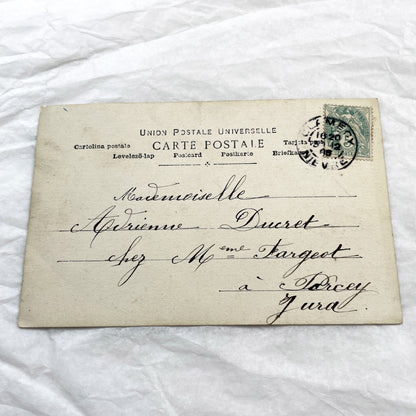 UNION POSTALE UNIVERSELLE
CARTE POSTALE
Cartolina postale
Levelező-lap Postcard Postkarte
CLAMECY
NIEVRE
Mademoiselle
Adrienne Ducret
chez Mme Fargeot
à
Jura